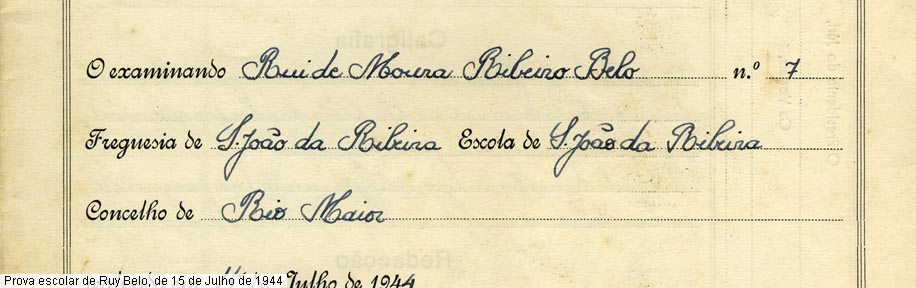 O examinando Rui de Moura Ribeiro Belo n.º 7
Freguesia de S. João da Ribeira Escola de S. João da Ribeira
Concelho de Rio Maior
Julho de 1944
Prova escolar de Ruy Belo, de 15 de Julho de 1944
Caligrafia
Redacção